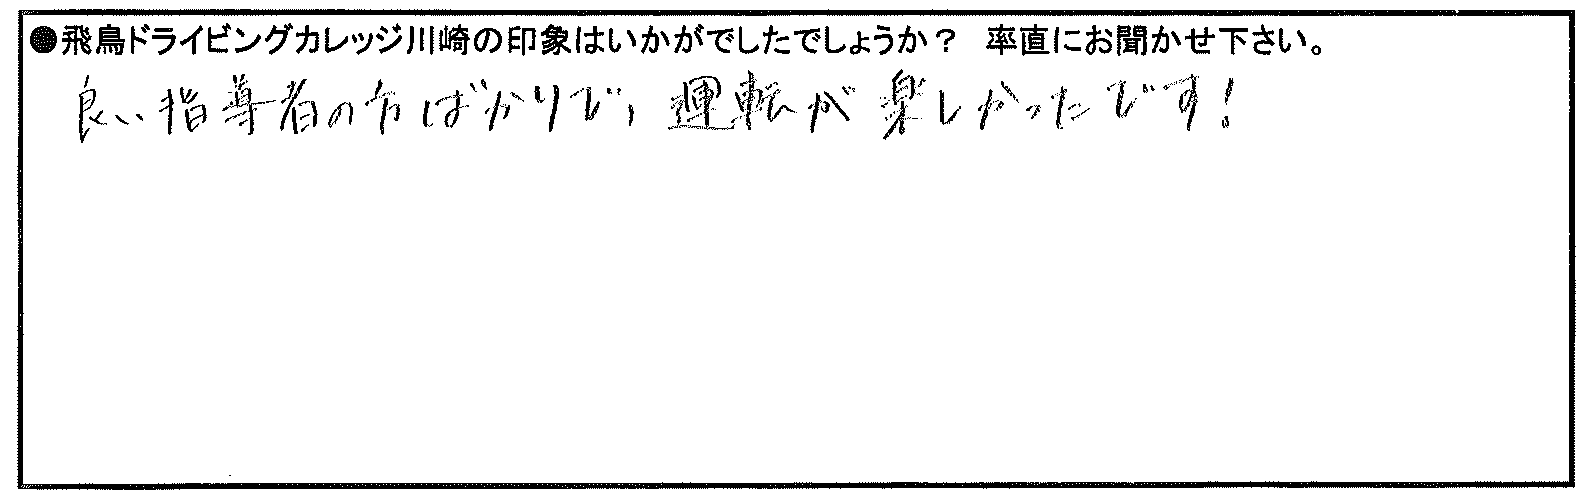 ●飛鳥ドライビングカレッジ川崎の印象はいかがでしたでしょうか？　率直にお聞かせ下さい。
良い指導者の方ばかりで、運転が楽しかったです！